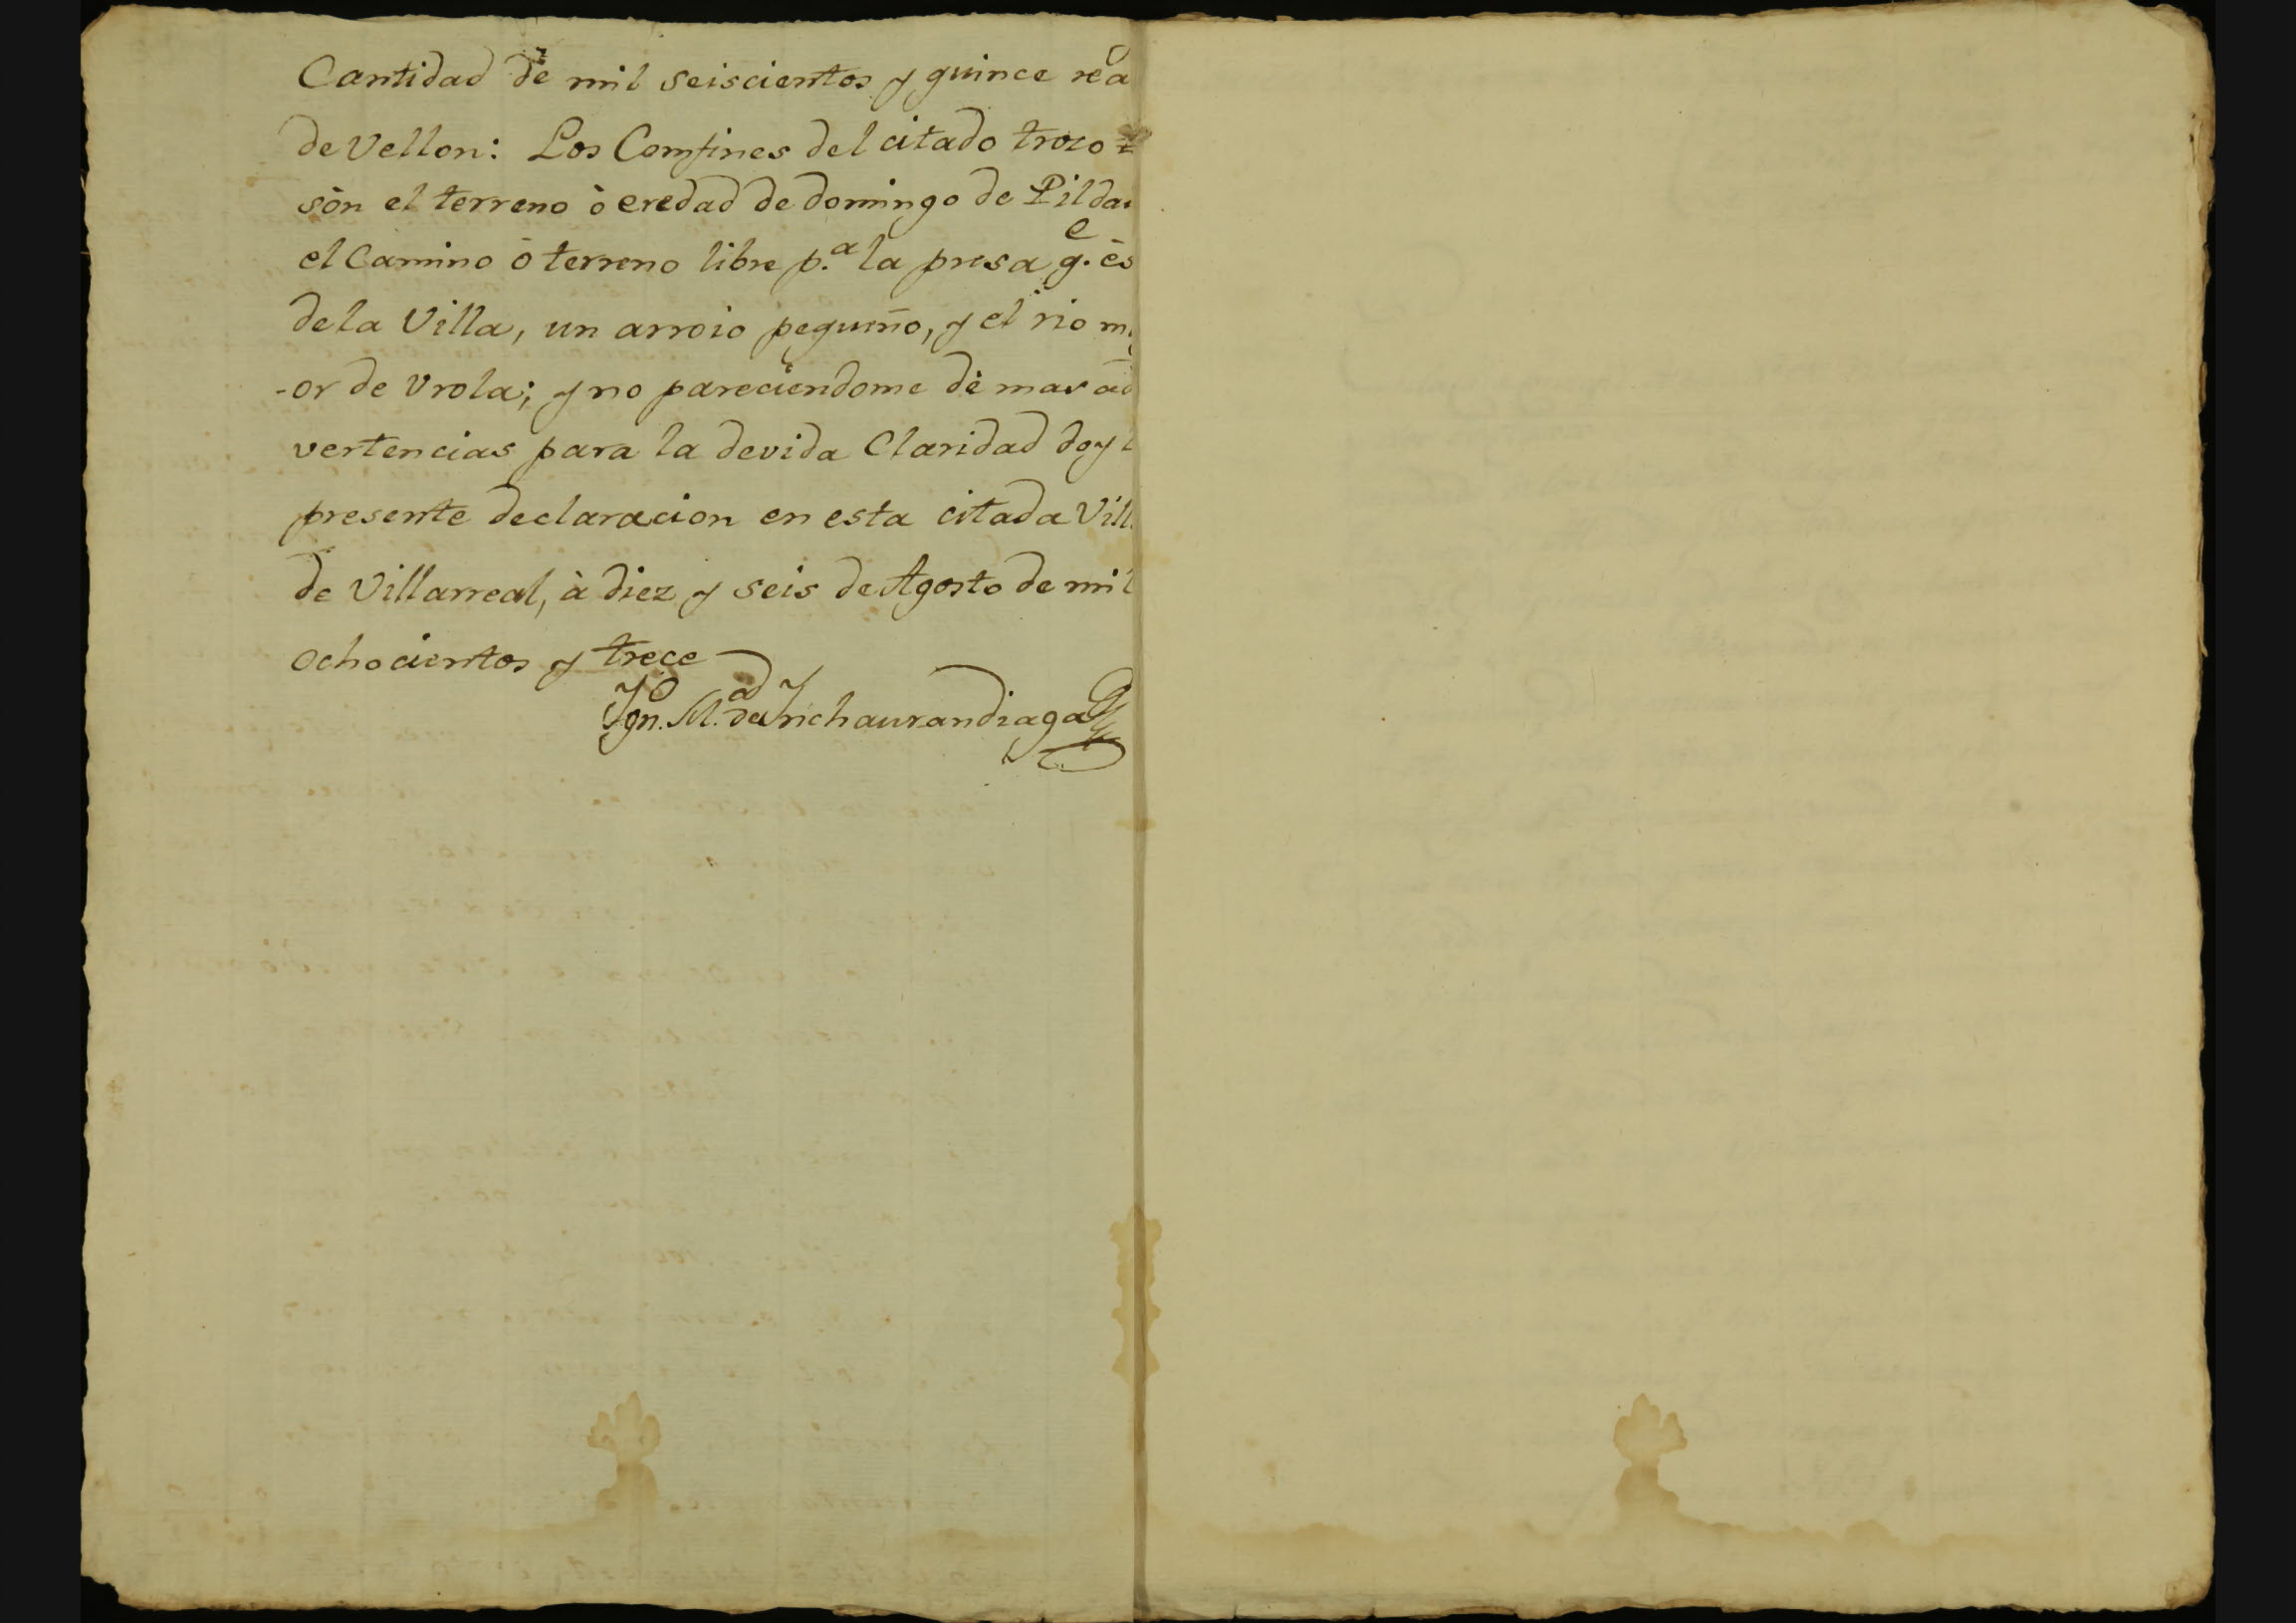 Cantidad de mil seiscientos y quince rea
de Vellon: Los Comfines del citado trozo
sòn el terreno ò eredad de domingo de Pilda
el Camino ò terreno libre p.ª la presa q.e ès
de la Villa, un arroio pequeño, y el rio m
-or de Vrola; y no pareciendome dè mas ad
vertencias para la devida Claridad doy
presente declaracion en esta citada Vill
de Villarreal, à diez y seis de Agosto de mil
ochocientos y trece
Ygn.o M.a de Ynchaurandiaga